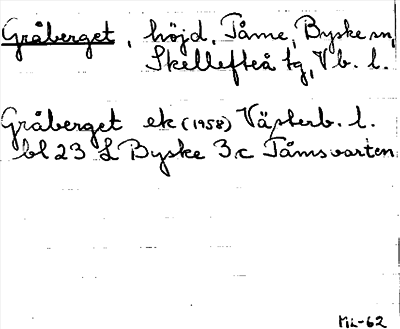 Gråberget, höjd, Tåme, Byske sn,
Skellefteå tg, Vb. l.
Gråberget ek (1958) Västerb. l.
bl 23 L Byske 3c Tåmsvarten
ML-62